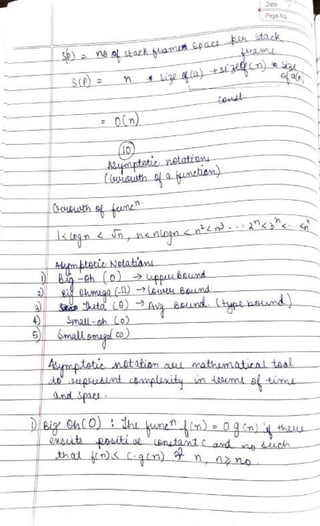 Date
Page No.
S(P) = no of stack frames space per stack
frame
S(P) = n * size of (a) + size of (n) + size
of a(n)
const
= O(n)
10
Asymptotic notation
(Growth of a function)
Growth of funcn
1 < logn < √n, n < nlogn < n² < n³ ... 2ⁿ < 3ⁿ < .. < nⁿ
Asymptotic Notations
1) Big-oh (O) → upper bound
2) Big Ohmega (Ω) → lower Bound
3) Theta (θ) → Avg Bound. (type bound)
4) Small-oh (o)
5) Small omega (ω)
Asymptotic notation are mathematical tool
to represent complexity in terms of time
and space.
i) Big Oh (O) : The funcn f(n) = O g(n) if there
positive constant c and no such
that f(n) ≤ c.g(n) n, n ≥ no.